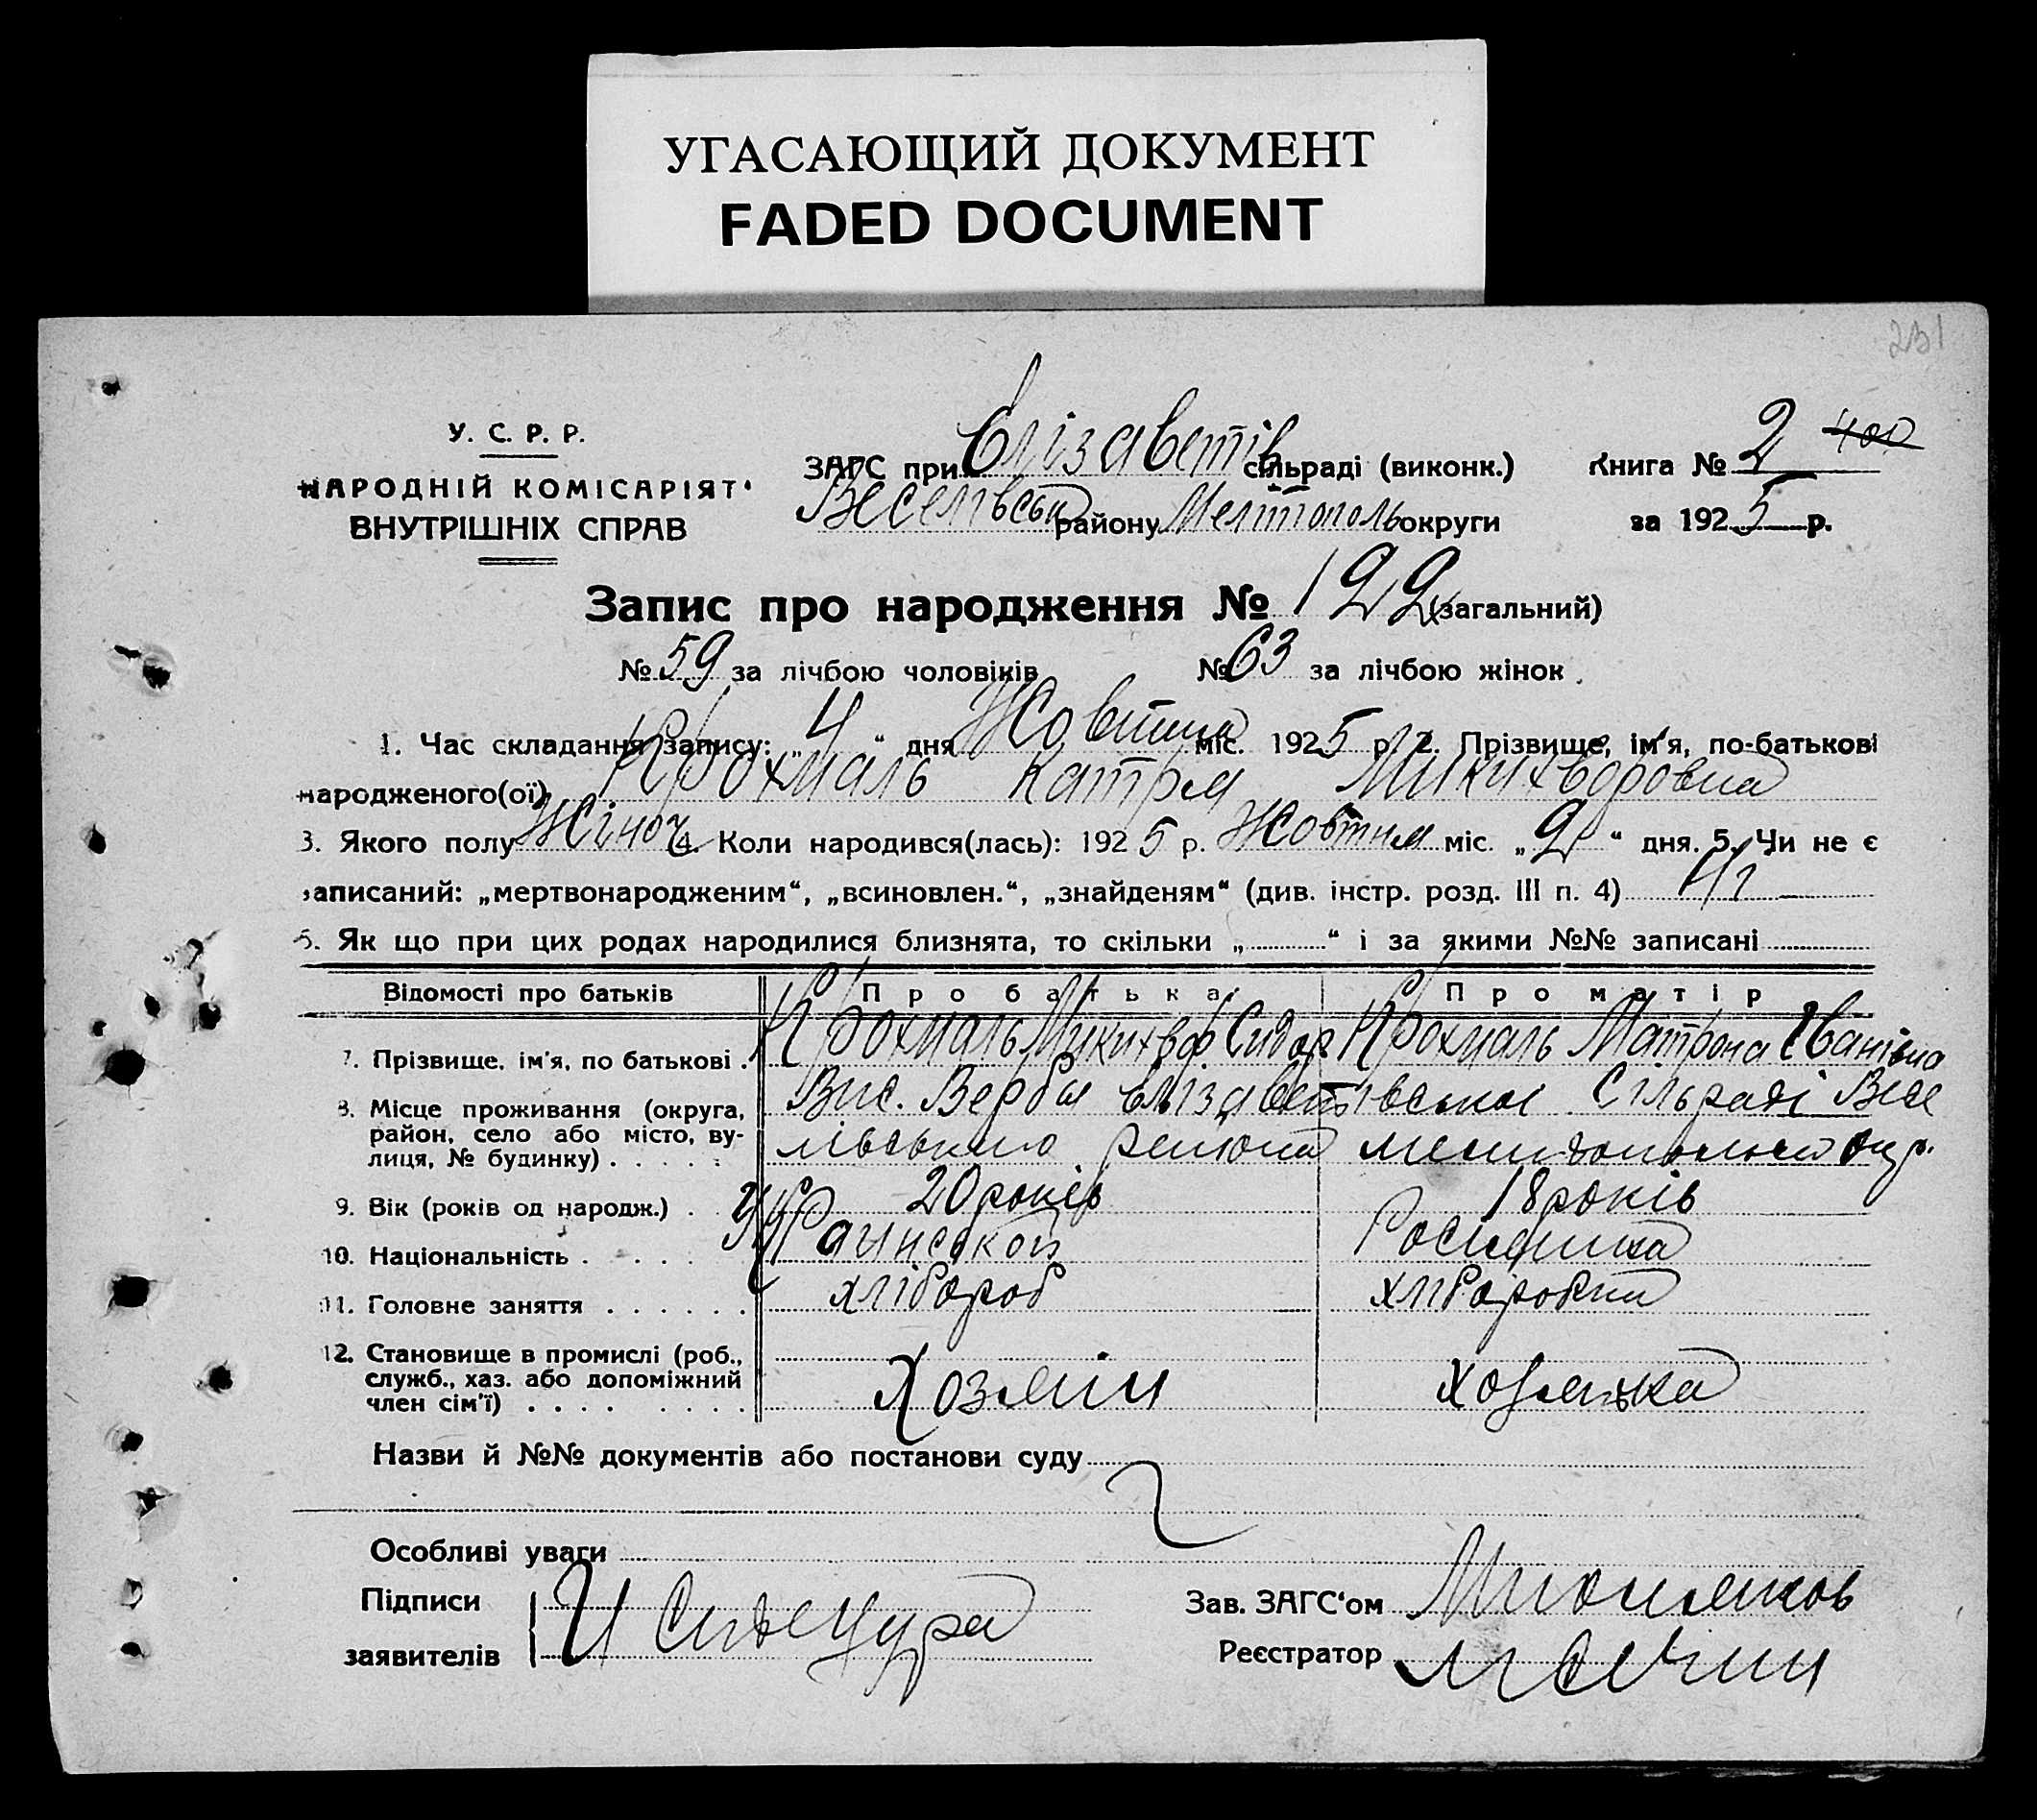 УГАСАЮЩИЙ ДОКУМЕНТ
FADED DOCUMENT
231
У. С. Р. Р.
НАРОДНІЙ КОМІСАРІЯТ
ВНУТРІШНІХ СПРАВ
ЗАГС при Єлізаветів сільраді (виконк.) Книга № 2 400
Веселівськ району Мелітополь округи за 1925 р.
Запис про народження № 122 (загальний)
№ 59 за лічбою чоловіків № 63 за лічбою жінок
1. Час складання запису: „ 4 “ дня Жовтня міс. 1925 р. 2. Прізвище, ім'я, по-батькові
народженого(ої) Крохмаль Катря Микихворовна
3. Якого полу Жіноч 4. Коли народився(лась): 1925 р. Жовтня міс. „ 2 “ дня. 5. Чи не є
записаний: „мертвонародженим“, „всиновлен.“, „знайденям“ (див. інстр. розд. III п. 4) Ні
6. Як що при цих родах народилися близнята, то скільки „ “ і за якими №№ записані
Відомості про батьків Про батька Про матір
7. Прізвище, ім'я, по батькові . Крохмаль Микихвор Сидор Крохмаль Матрона Іванівна
8. Місце проживання (округа, Вис. Верби Єлізаветівськоі Сільраді Весе
район, село або місто, ву-
лиця, № будинку) . . . . . лівського району Мелитопольськоі окр.
9. Вік (років од народж.) . 20 років 18 років
10. Національність . . . . .
11. Головне заняття . . . . . . хлібороб хліборобка
12. Становище в промислі (роб.,
служб., хаз. або допоміжний Хозяін хозяйка
член сім'ї) . . . . . . . .
Назви й №№ документів або постанови суду
Особливі уваги
Підписи
заявителів
Зав. ЗАГС'ом
Реєстратор